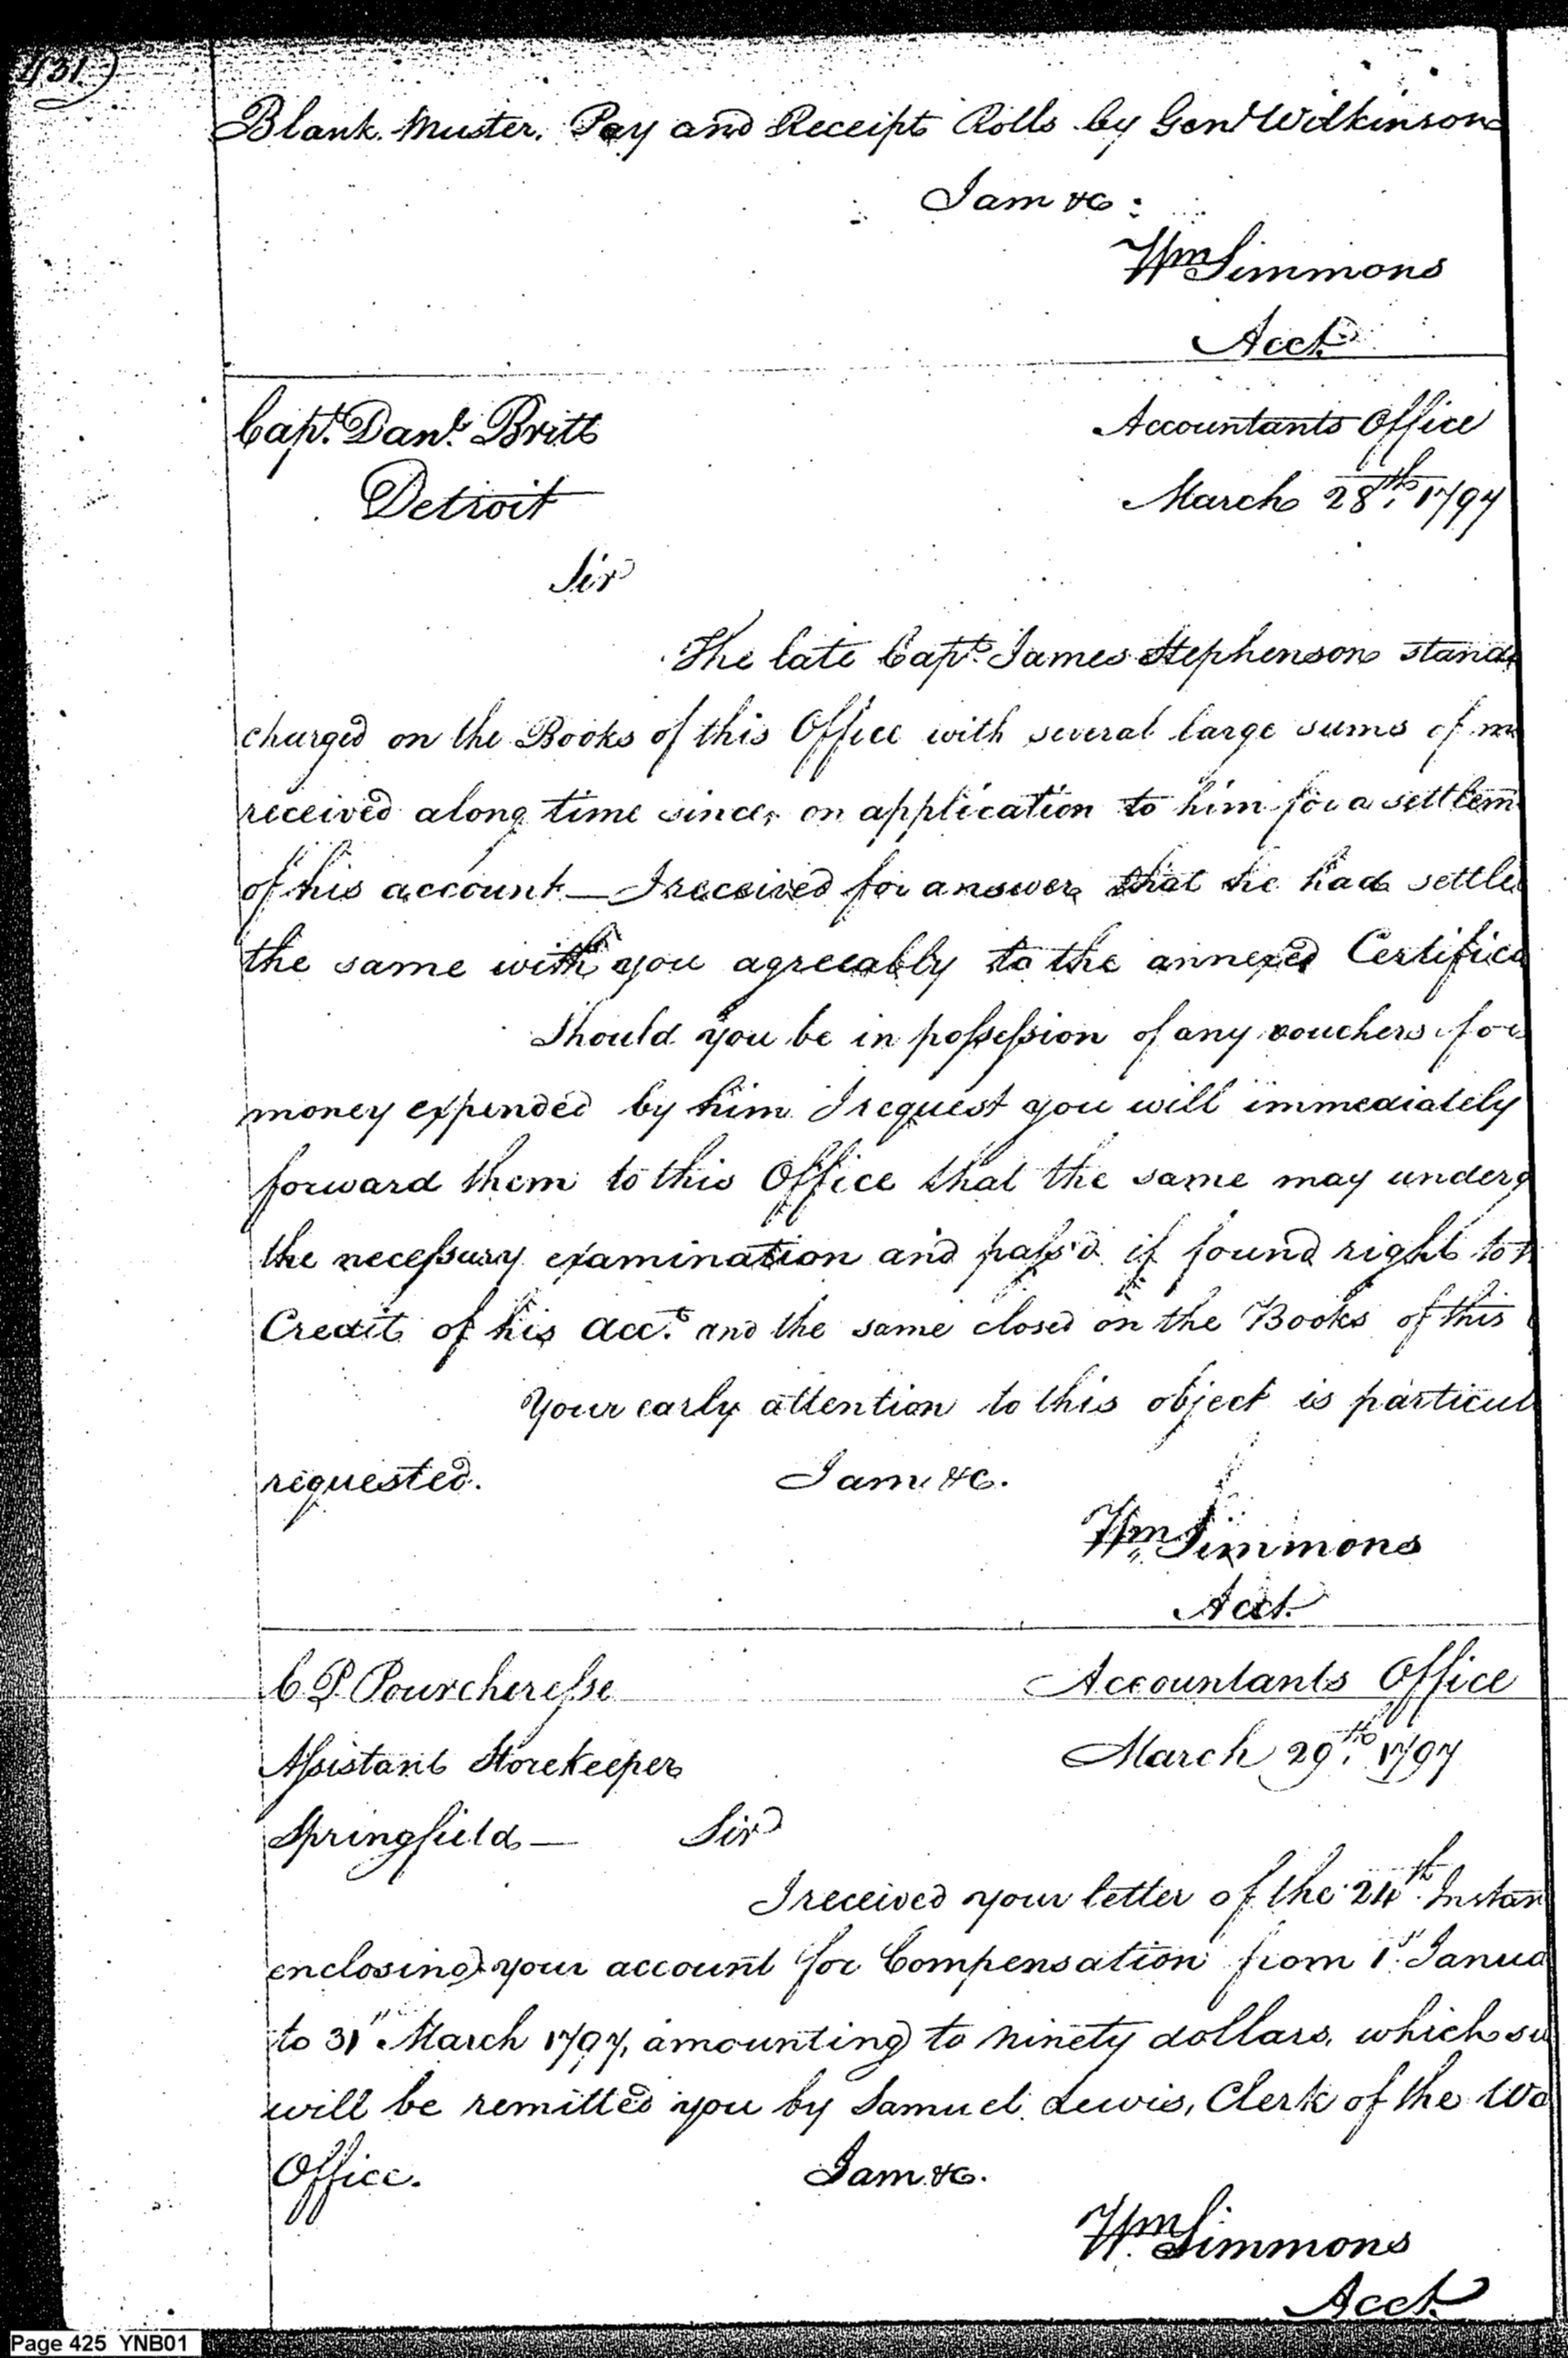 431)
Blank Muster, Pay and Receipt Rolls by Genl Wilkinson
I am &c:
Wm Simmons
Acct.
Capt. Danl. Britt
Accountants Office
Detroit
March 28th. 1797
Sir
The late Capt. James Stephenson stands
charged on the Books of this Office with several large sums of
received along time since, on application to him for a settlem
of his account — I received for answer that he had settled
the same with you agreeably to the annexed Certifica
Should you be in possession of any vouchers for
money expended by him I request you will immediately
forward them to this Office that the same may underg
the necessary examination and pass'd if found right to
Credit of his Acct. and the same closed on the Books of this
Your early attention to this object is particul
requested. I am &c.
Wm. Simmons
Acct.
C P. Pourcheresse
Accountants Office
Assistant Storekeeper
March 29th. 1797
Springfield — Sir
I received your letter of the 24th. Instan
enclosing your account for Compensation from 1st. Janua
to 31st March 1797, amounting to ninety dollars, which su
will be remitted you by Samuel Lewis, Clerk of the Wa
Office. I am &c.
Wm. Simmons
Acct.
Page 425 YNB01